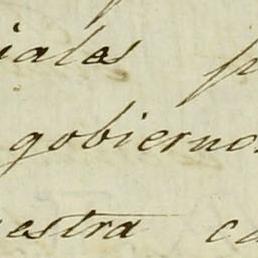 iales p
gobierno
estra ca